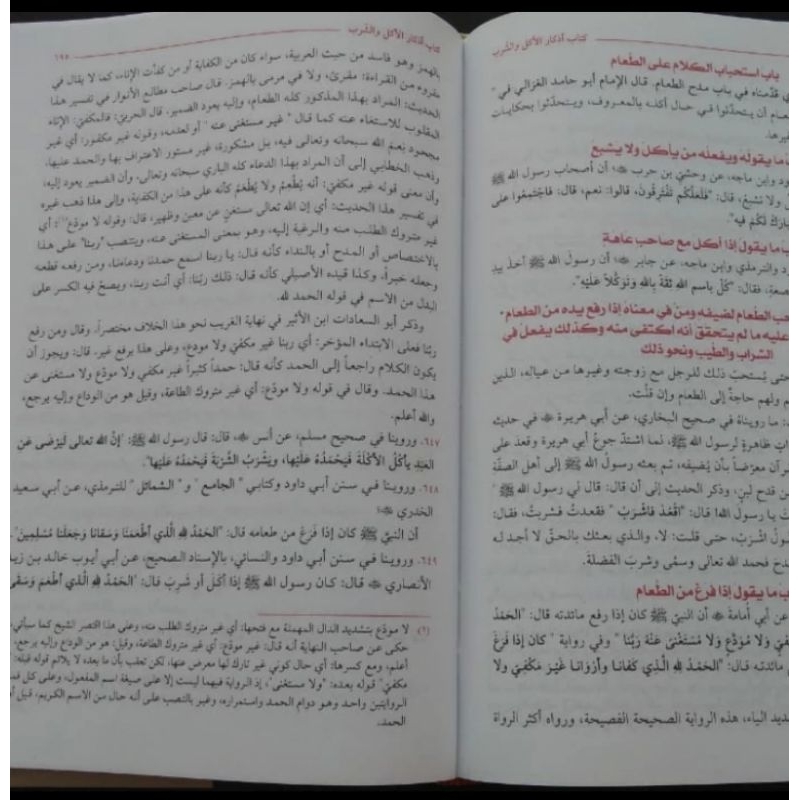 كتاب أذكار الأكل والشرب
باب استحباب الكلام على الطعام
قدّمناه في باب مدح الطعام. قال الإمام أبو حامد الغزالي في
عام أن يتحدّثوا في حال أكله بالمعروف، ويتحدّثوا بحكايات
ما يقوله ويفعله من يأكل ولا يشبع
ود وابن ماجه، عن وحشيّ بن حرب أن أصحاب رسول الله ﷺ
ولا نشبعُ، قال: "فَلَعَلَّكُم تَفْتَرِقُونَ، قالوا: نعم، قال: فاجْتَمِعُوا على
بارَكْ لَكُم فيه".
ما يقول إذا أكل مع صاحب عاهة
د والترمذي وابن ماجه، عن جابر أن رسول الله ﷺ أخذ بيد
صعةِ، فقال: "كُلْ باسم الله ثِقَةً باللهِ وَتَوَكُّلاً عَلَيْهِ".
حب الطعام لضيفه ومن في معناه إذا رفع يده من الطعام
عليه ما لم يتحقق أنه اكتفى منه وكذلك يفعل في
الشراب والطّيب ونحو ذلك
حتى يُستحبّ ذلك للرجل مع زوجته وغيرها من عياله، الذين
م ولهم حاجةٌ إلى الطعام وإن قلّت.
: ما رويناه في صحيح البخاري، عن أبي هريرة في حديث
اتٍ ظاهرةٍ لرسول الله ﷺ، لما اشتدّ جوعُ أبي هريرة وقعد على
رآن معرّضاً بأن يُضيفه، ثم بعثه رسول الله ﷺ إلى أهل الصفّة
من قدح لبنٍ، وذكر الحديث إلى أن قال: قال لي رسول الله ﷺ "
ت يا رسول الله! قال: "اقْعُدْ فاشْرَبْ" فقعدتُ فشربتُ، فقال:
ولُ اشْرَبْ، حتى قلت: لا، والذي بعثك بالحقّ لا أجدُ له
دحَ فحمد الله تعالى وسمّى وشربَ الفضلة.
ب ما يقول إذا فرغ من الطعام
عن أبي أُمامةَ أن النبيّ ﷺ كان إذا رفع مائدته قال: "الحَمْدُ
فِيّ وَلا مُوَدَّعٍ وَلا مُسْتَغْنًى عَنْهُ رَبَّنا" وفي رواية "كان إذا فَرَغَ
مائدته قال: "الحَمْدُ لِلَّهِ الَّذِي كَفانا وأَرْوَانا غَيْرَ مَكْفِيّ ولا
ديد الياء، هذه الرواية الصحيحة الفصيحة، ورواه أكثر الرواة
كتاب أذكار الأكل والشرب ١٩٥
بالهمز وهو فاسد من حيث العربية، سواء كان من الكفاية أو من كفأت الإناء، كما لا يقال في
مقروء من القراءة: مقرئ، ولا في مرمى بالهمز. قال صاحب مطالع الأنوار في تفسير هذا
الحديث: المراد بهذا المذكور كله الطعام، وإليه يعود الضمير. قال الحربيّ: فالمكفيّ: الإناء
المقلوب للاستغناء عنه كما قال "غير مستغنى عنه" أو لعدمه، وقوله غير مكفور: أي غير
مجحود نِعم الله سبحانه وتعالى فيه، بل مشكورة، غير مستور الاعتراف بها والحمد عليها.
وذهب الخطابي إلى أن المراد بهذا الدعاء كله الباري سبحانه وتعالى، وأن الضمير يعود إليه،
وأن معنى قوله غير مكفيّ: أنه يُطْعِمُ ولا يُطْعَمُ كأنه على هذا: من الكفاية، وإلى هذا ذهب غيره
في تفسير هذا الحديث: أي إن الله تعالى مستغنٍ عن معين وظهير، قال: وقوله لا مودع: أي
غير متروك الطلب منه والرغبة إليه، وهو بمعنى المستغنى عنه، وينتصب "ربنا" على هذا
بالاختصاص أو المدح أو بالنداء كأنه قال: يا ربنا اسمع حمدنا ودعاءنا، ومن رفعه قطعه
وجعله خبراً، وكذا قيده الأصيلي كأنه قال: ذلك ربُّنا: أي أنت ربنا، ويصحّ فيه الكسر على
البدل من الاسم في قوله الحمد لله.
وذكر أبو السعادات ابن الأثير في نهاية الغريب نحو هذا الخلاف مختصراً. وقال ومن رفع
ربّنا فعلى الابتداء المؤخر: أي ربنا غير مكفيّ ولا مودع، وعلى هذا يرفع غير. قال: ويجوز أن
يكون الكلام راجعاً إلى الحمد كأنه قال: حمداً كثيراً غير مكفي ولا مودّع ولا مستغنى عن
هذا الحمد. وقال في قوله ولا مودّع: أي غير متروك الطاعة، وقيل هو من الوداع وإليه يرجع،
والله أعلم.
٦٤٧. وروينا في صحيح مسلم، عن أنس، قال: قال رسول الله ﷺ: "إنَّ الله تعالى لَيَرْضَى عَنِ
العَبْدِ يأكُلُ الأكْلَةَ فَيَحْمَدُهُ عَلَيْها، ويَشْرَبُ الشَّرْبَةَ فَيَحْمَدُهُ عَلَيْها".
٦٤٨. وروينا في سنن أبي داود وكتابي "الجامع" و "الشمائل" للترمذي، عن أبي سعيد
الخدري
أن النبيّ ﷺ كان إذا فَرَغَ من طعامه قال: "الحَمْدُ لِلَّهِ الَّذي أطْعَمَنَا وَسَقانا وَجَعَلَنَا مُسْلِمِينَ".
٦٤٩. وروينا في سنن أبي داود والنسائي، بالإسناد الصحيح، عن أبي أيوب خالد بن زيد
الأنصاري قال: كان رسول الله ﷺ إذا أكل أو شرب قال: "الحَمْدُ لِلَّهِ الَّذي أطْعَمَ وَسَقَى
لا مودّع بتشديد الدال المهملة مع فتحها: أي غير متروك الطلب منه، وعلى هذا اقتصر الشيخ كما سيأتي
حكى عن صاحب النهاية أنه قال: غير مودّع: أي غير متروك الطاعة، وقيل: هو من الوداع وإليه يرجع،
أعلم، ومع كسرها: أي حال كوني غير تارك لها معرض عنها، لكن تعقب بأن ما بعده لا يلائم قوله قبله:
مكفيّ" قوله بعده: "ولا مستغنى"، إذ الرواية فيهما ليست إلا على صيغة اسم المفعول، وعلى كل فم
الروايتين واحد وهو دوام الحمد واستمراره، وغير بالنصب على أنه حال من الاسم الكريم، قيل أ
الحمد.